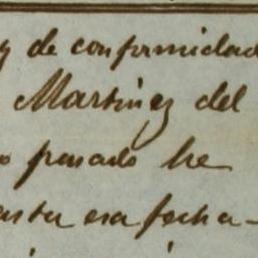 y de conformidad
Martinez del
o pasado he
asta esa fecha